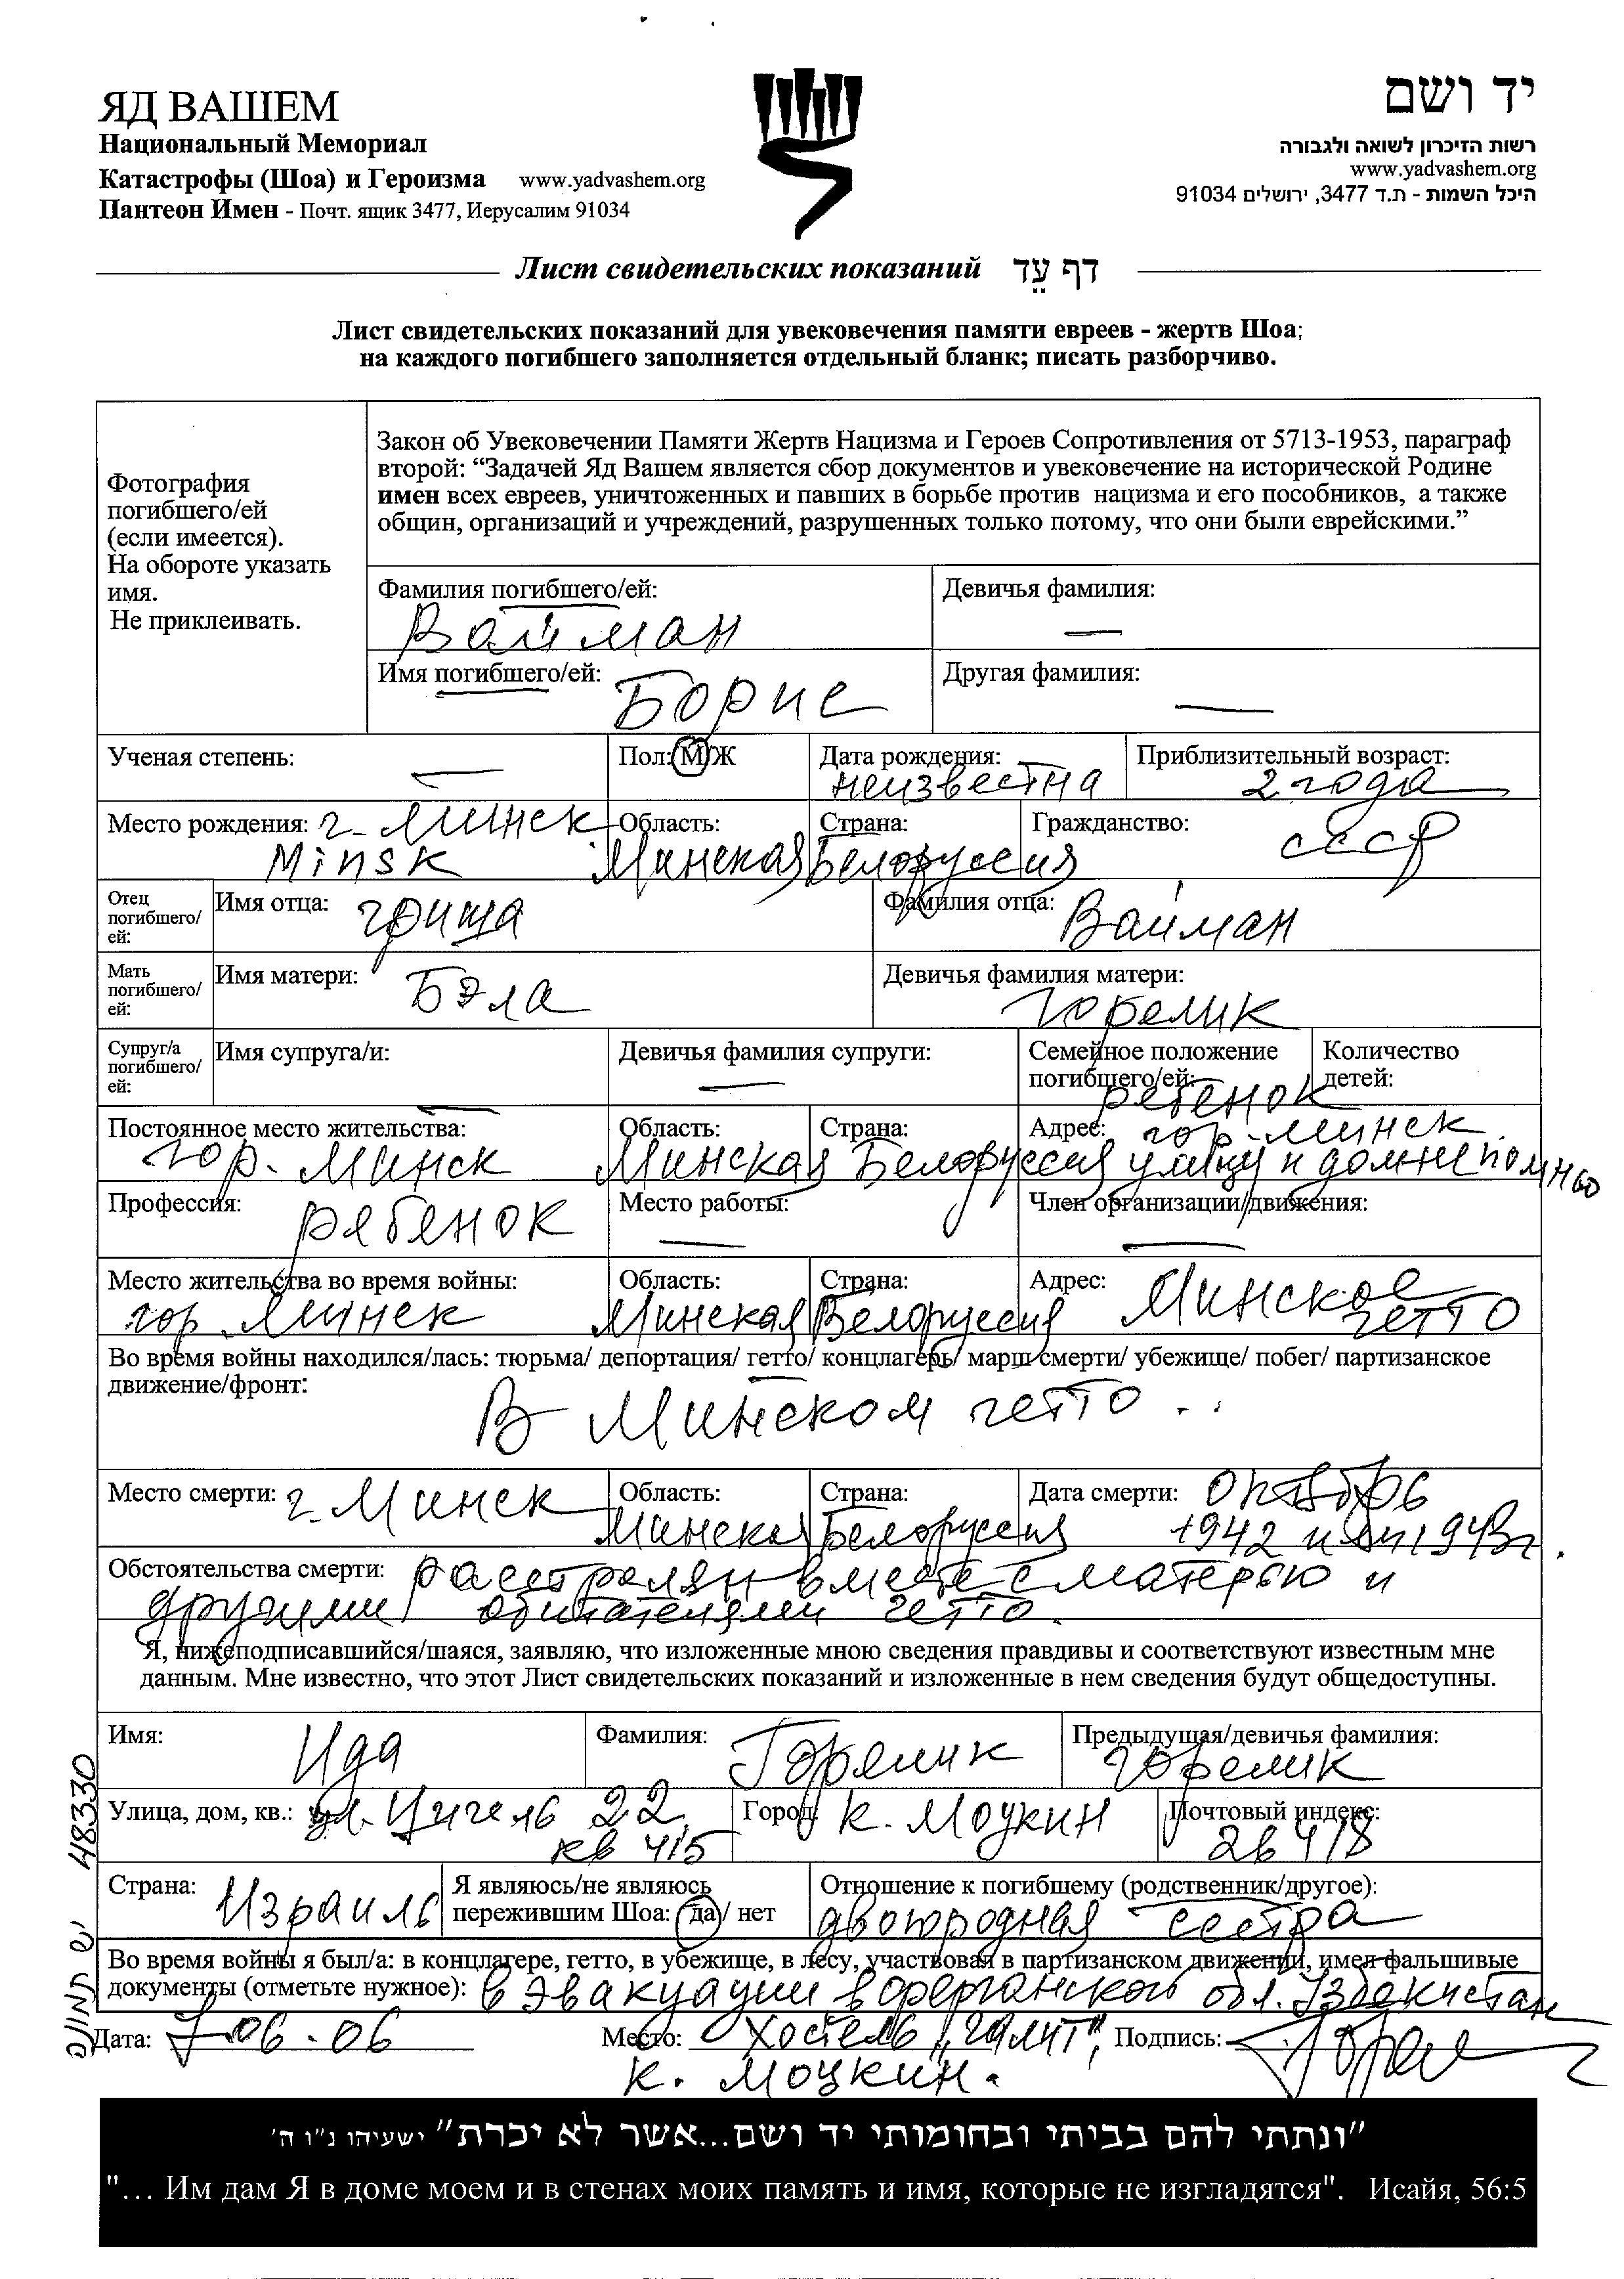 ЯД ВАШЕМ
Национальный Мемориал
Катастрофы (Шоа) и Героизма www.yadvashem.org
Пантеон Имен - Почт. ящик 3477, Иерусалим 91034
יד ושם
רשות הזיכרון לשואה ולגבורה
www.yadvashem.org
היכל השמות - ת.ד 3477, ירושלים 91034
Лист свидетельских показаний דף עֵד
Лист свидетельских показаний для увековечения памяти евреев - жертв Шоа;
на каждого погибшего заполняется отдельный бланк; писать разборчиво.
Фотография
погибшего/ей
(если имеется).
На обороте указать
имя.
Не приклеивать.
Закон об Увековечении Памяти Жертв Нацизма и Героев Сопротивления от 5713-1953, параграф
второй: “Задачей Яд Вашем является сбор документов и увековечение на исторической Родине
имен всех евреев, уничтоженных и павших в борьбе против нацизма и его пособников, а также
общин, организаций и учреждений, разрушенных только потому, что они были еврейскими.”
Фамилия погибшего/ей: Девичья фамилия:
Вайман —
Имя погибшего/ей: Борис Другая фамилия: —
Ученая степень: — Пол: М/Ж Дата рождения: Приблизительный возраст:
неизвестна 2 года
Место рождения: г. Минск Область: Страна: Гражданство: СССР
Minsk Минская Белоруссия
Отец погибшего/ей: Имя отца: Гриша Фамилия отца: Вайман
Мать погибшего/ей: Имя матери: Бэла Девичья фамилия матери:
Горелик
Супруг/а погибшего/ей: Имя супруга/и: — Девичья фамилия супруги: — Семейное положение погибшего/ей: ребенок Количество детей:
Постоянное место жительства: Область: Страна: Адрес: гор. Минск
гор. Минск Минская Белоруссия улицу и дом не помню
Профессия: ребенок Место работы: — Член организации/движения: —
Место жительства во время войны: Область: Страна: Адрес: Минское
гор. Минск Минская Белоруссия гетто
Во время войны находился/лась: тюрьма/ депортация/ гетто/ концлагерь/ марш смерти/ убежище/ побег/ партизанское
движение/фронт:
В Минском гетто . .
Место смерти: г. Минск Область: Страна: Дата смерти: октябрь
Минская Белоруссия 1942 или 1943г.
Обстоятельства смерти: расстрелян вместе с матерью и
другими обитателями гетто.
Я, нижеподписавшийся/шаяся, заявляю, что изложенные мною сведения правдивы и соответствуют известным мне
данным. Мне известно, что этот Лист свидетельских показаний и изложенные в нем сведения будут общедоступны.
Имя: Ида Фамилия: Горелик Предыдущая/девичья фамилия:
Горелик
Улица, дом, кв.: ул. Цигель 22 Город: К. Моцкин Почтовый индекс:
кв 4/5
Страна: Израиль Я являюсь/не являюсь пережившим Шоа: да/ нет Отношение к погибшему (родственник/другое):
двоюродная сестра
Во время войны я был/а: в концлагере, гетто, в убежище, в лесу, участвовал в партизанском движении, имел фальшивые
документы (отметьте нужное): в эвакуации в ферганской обл. Узбекистан
Дата: 7-06-06 Место: Хостель „Галит", Подпись:
К. Моцкин.
יש תמונה 48330
”ונתתי להם בביתי ובחומותי יד ושם...אשר לא יכרת” ישעיהו נ"ו ה'
"... Им дам Я в доме моем и в стенах моих память и имя, которые не изгладятся". Исайя, 56:5